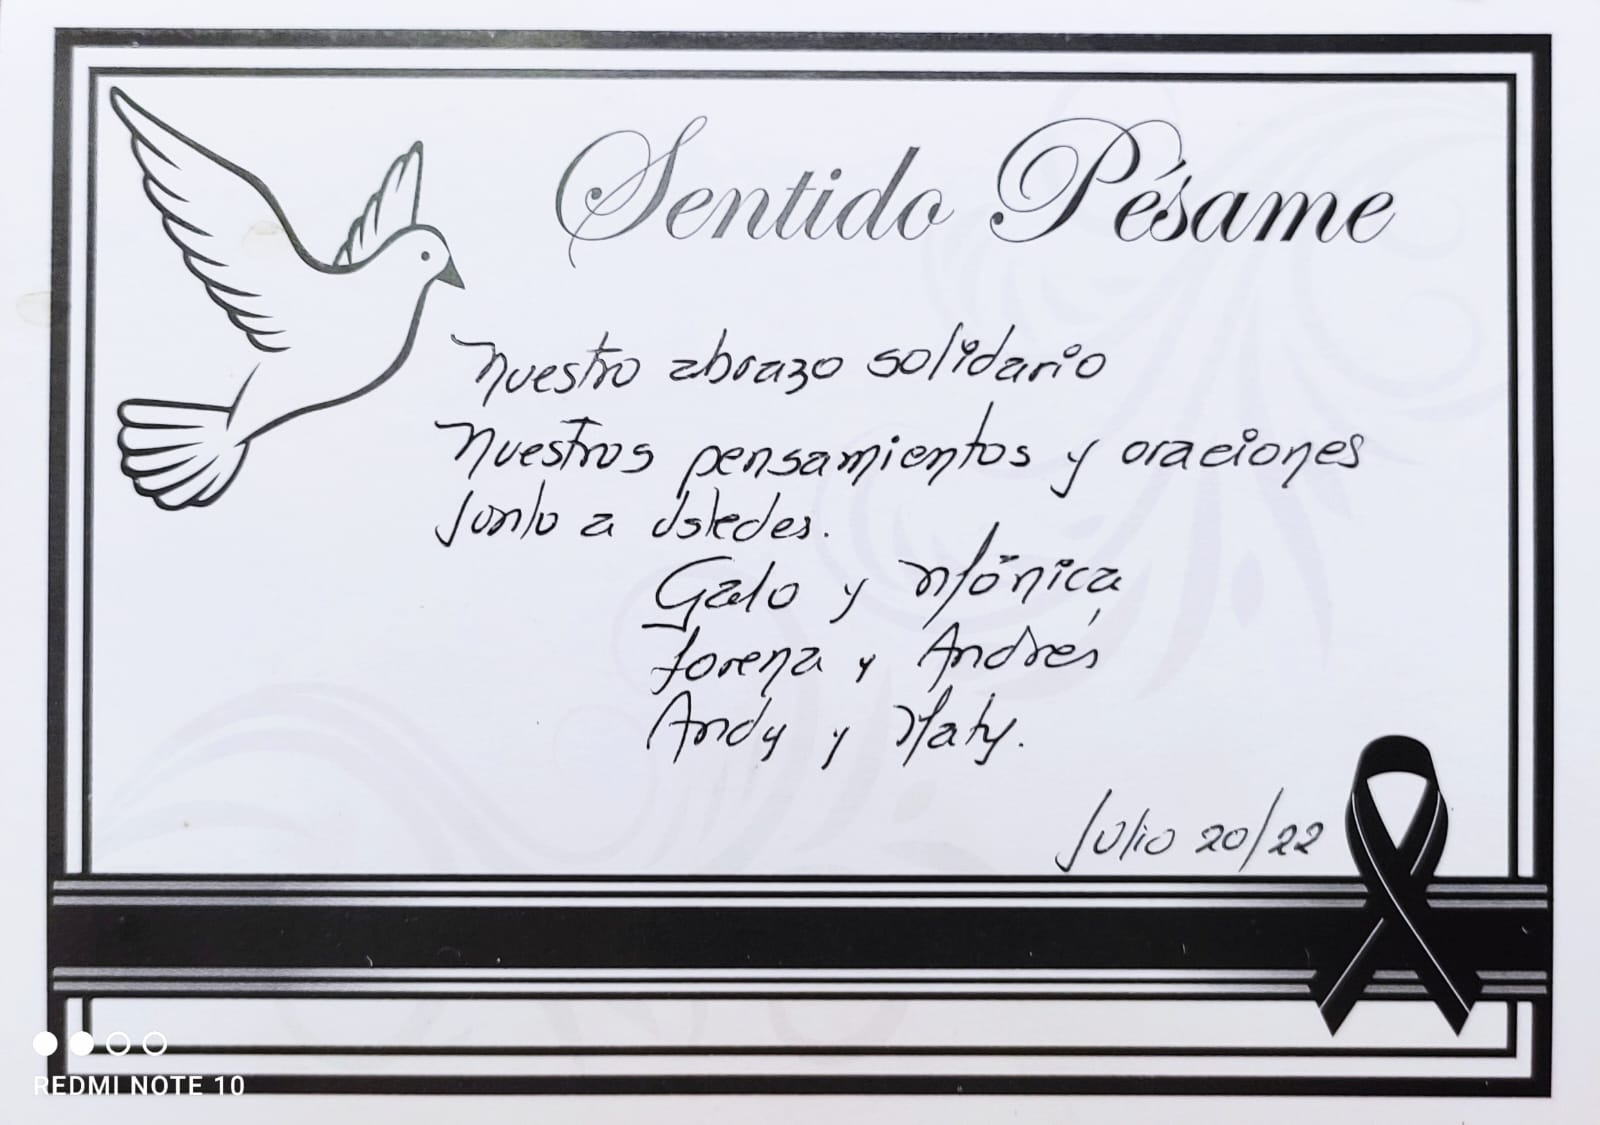 Sentido Pésame
Nuestro abrazo solidario
Nuestros pensamientos y oraciones
Junto a Ustedes.
Galo y Mónica
Lorena y Andrés
Andy y Maty.
Julio 20/22
REDMI NOTE 10